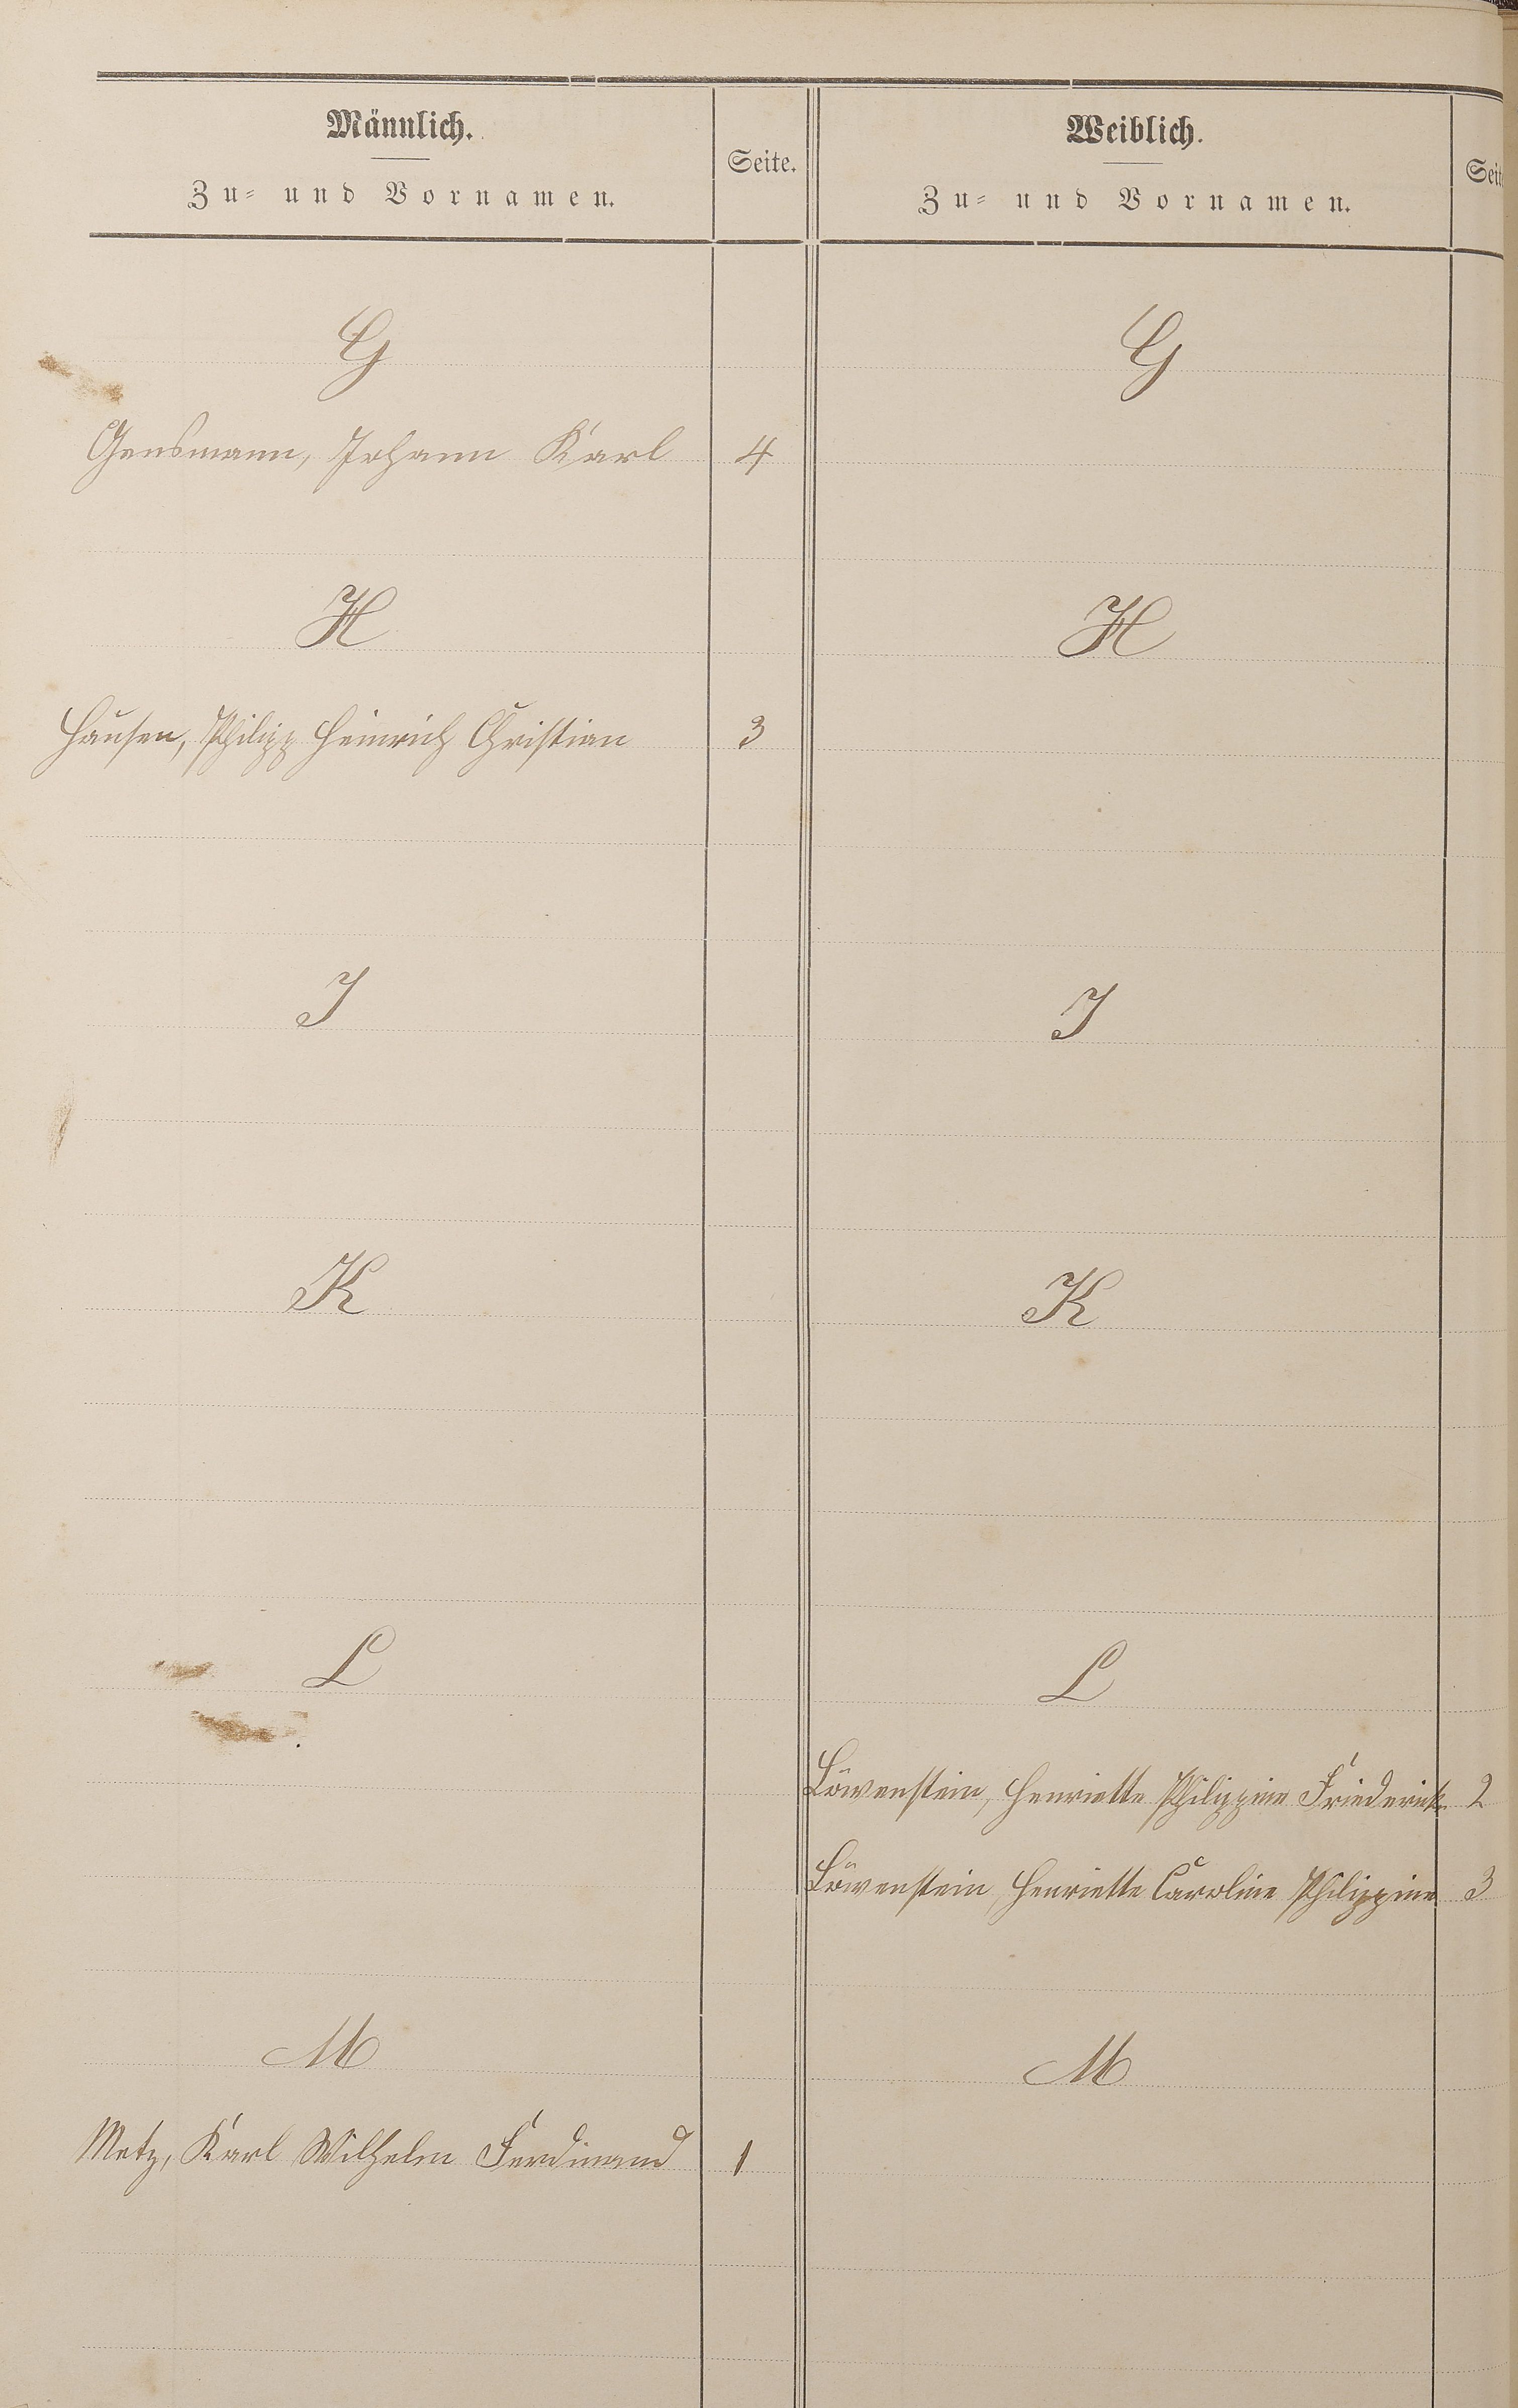 Männlich.
Zu- und Vornamen.
Seite.
Weiblich.
Zu- und Vornamen.
Seit
G
G
Gensmann, Johann Karl 4
H
H
Hausen, Philipp Heinrich Christian 3
I
I
K
K
L
L
Löwenstein, Henriette Philippine Friederike 2
Löwenstein, Henriette Caroline Philippine 3
M
M
Metz, Karl Wilhelm Ferdinand 1